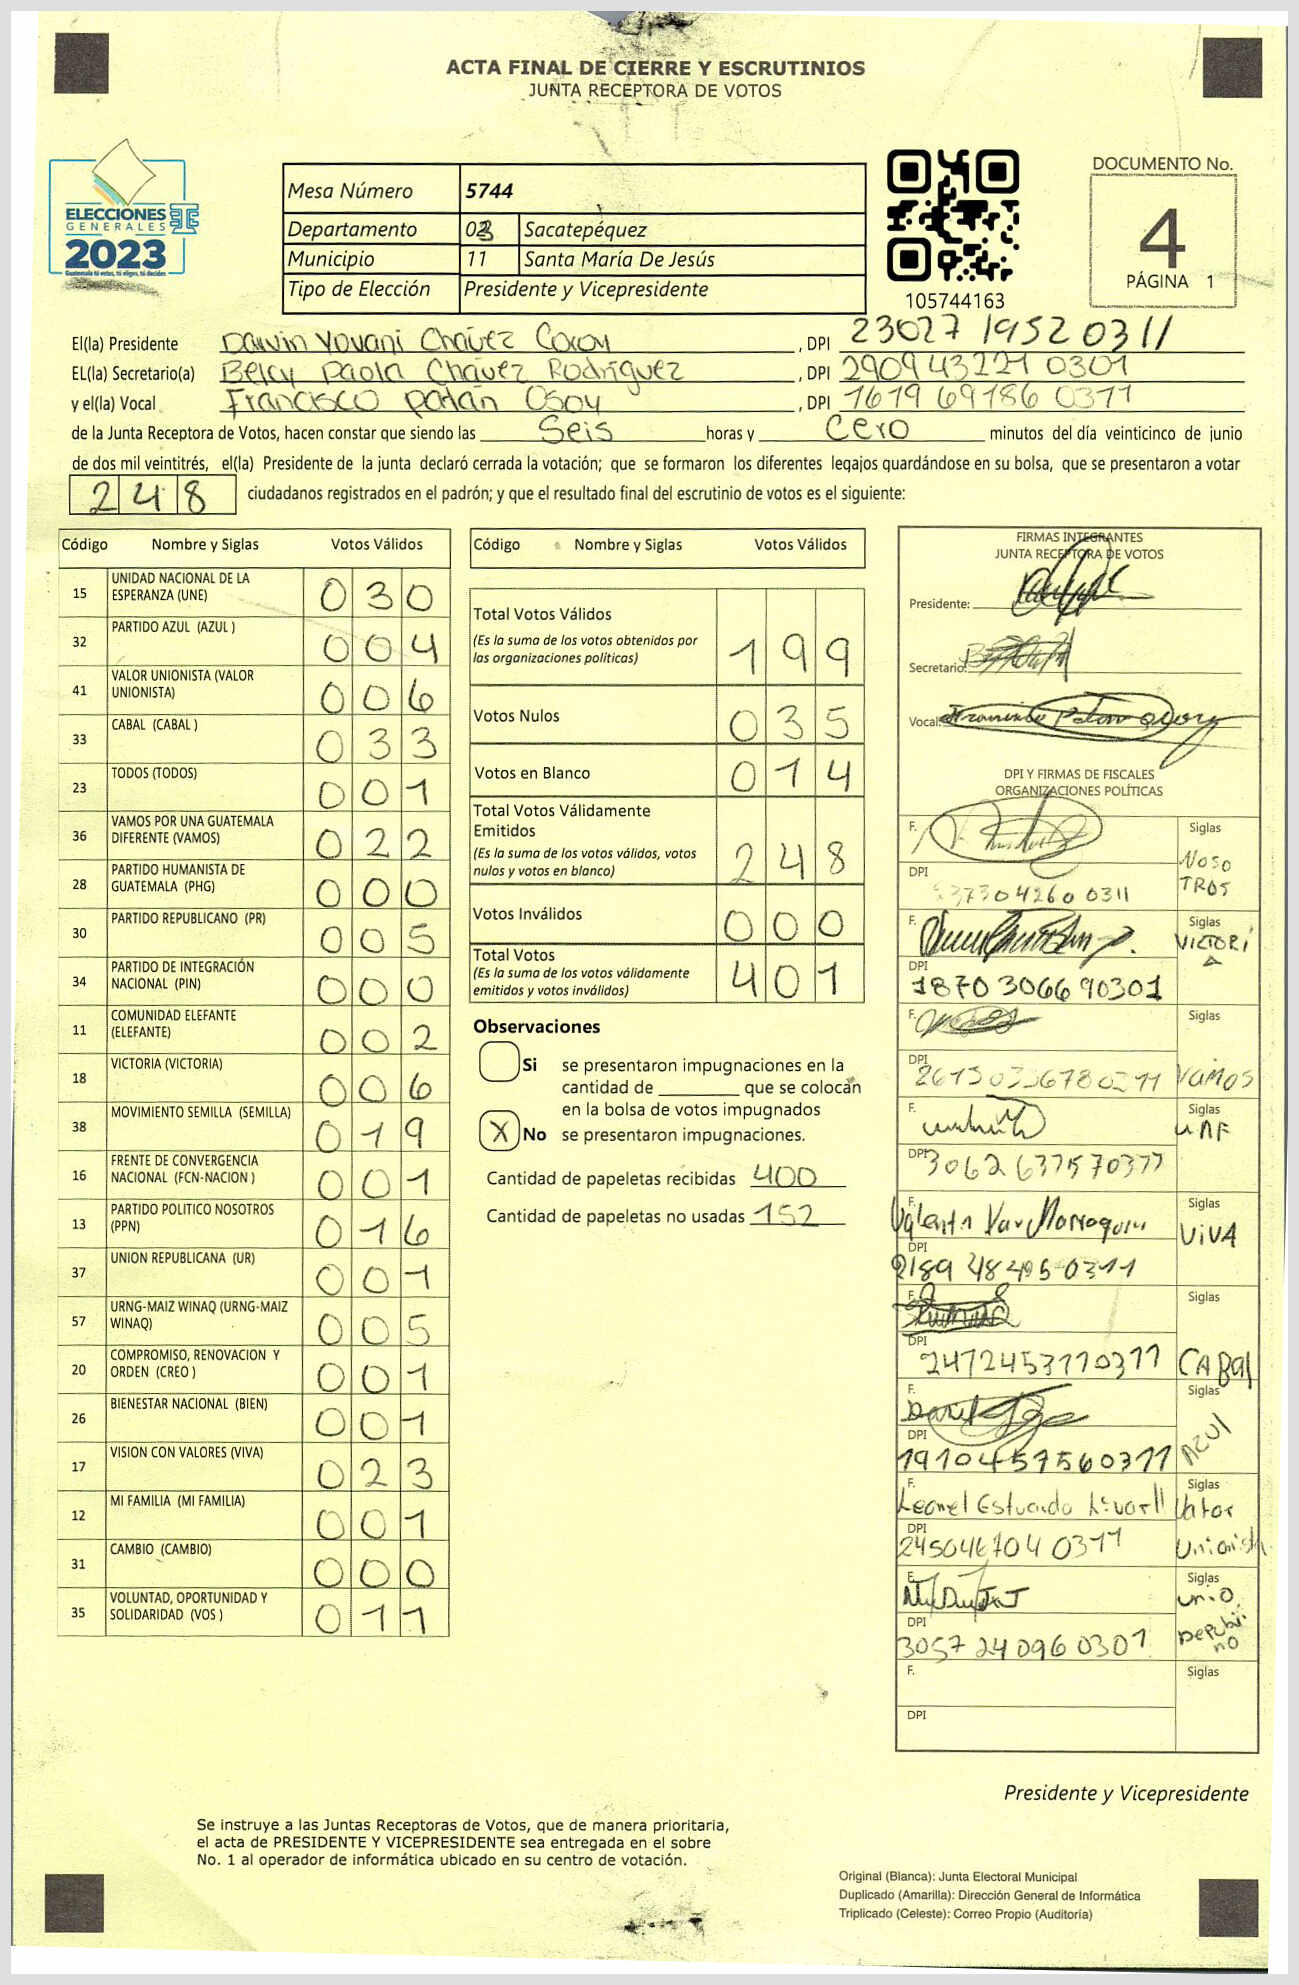 ACTA FINAL DE CIERRE Y ESCRUTINIOS
JUNTA RECEPTORA DE VOTOS
ELECCIONES
GENERALES
2023
Guatemala tú votas, tú eliges, tú decides
Mesa Número 5744
Departamento 03 Sacatepéquez
Municipio 11 Santa María De Jesús
Tipo de Elección Presidente y Vicepresidente
105744163
DOCUMENTO No.
4
PÁGINA 1
El(la) Presidente Darwin Yovani Chávez Coroy, DPI 23027 1952 0311
EL(la) Secretario(a) Belcy Paola Chávez Rodríguez, DPI 2909 43221 0301
y el(la) Vocal Francisco Patán Osoy, DPI 1619 69186 0311
de la Junta Receptora de Votos, hacen constar que siendo las Seis horas y Cero minutos del día veinticinco de junio
de dos mil veintitrés, el(la) Presidente de la junta declaró cerrada la votación; que se formaron los diferentes legajos guardándose en su bolsa, que se presentaron a votar
248 ciudadanos registrados en el padrón; y que el resultado final del escrutinio de votos es el siguiente:
Código Nombre y Siglas Votos Válidos
15 UNIDAD NACIONAL DE LA ESPERANZA (UNE) 030
32 PARTIDO AZUL (AZUL ) 004
41 VALOR UNIONISTA (VALOR UNIONISTA) 006
33 CABAL (CABAL ) 033
23 TODOS (TODOS) 001
36 VAMOS POR UNA GUATEMALA DIFERENTE (VAMOS) 022
28 PARTIDO HUMANISTA DE GUATEMALA (PHG) 000
30 PARTIDO REPUBLICANO (PR) 005
34 PARTIDO DE INTEGRACIÓN NACIONAL (PIN) 000
11 COMUNIDAD ELEFANTE (ELEFANTE) 002
18 VICTORIA (VICTORIA) 006
38 MOVIMIENTO SEMILLA (SEMILLA) 019
16 FRENTE DE CONVERGENCIA NACIONAL (FCN-NACION ) 001
13 PARTIDO POLITICO NOSOTROS (PPN) 016
37 UNION REPUBLICANA (UR) 001
57 URNG-MAIZ WINAQ (URNG-MAIZ WINAQ) 005
20 COMPROMISO, RENOVACION Y ORDEN (CREO ) 001
26 BIENESTAR NACIONAL (BIEN) 001
17 VISION CON VALORES (VIVA) 023
12 MI FAMILIA (MI FAMILIA) 001
31 CAMBIO (CAMBIO) 000
35 VOLUNTAD, OPORTUNIDAD Y SOLIDARIDAD (VOS ) 011
Código Nombre y Siglas Votos Válidos
Total Votos Válidos
(Es la suma de los votos obtenidos por
las organizaciones políticas) 199
Votos Nulos 035
Votos en Blanco 014
Total Votos Válidamente
Emitidos
(Es la suma de los votos válidos, votos
nulos y votos en blanco) 248
Votos Inválidos 000
Total Votos
(Es la suma de los votos válidamente
emitidos y votos inválidos) 401
Observaciones
Si se presentaron impugnaciones en la
cantidad de ________ que se colocan
en la bolsa de votos impugnados
X No se presentaron impugnaciones.
Cantidad de papeletas recibidas 400
Cantidad de papeletas no usadas 152
FIRMAS INTEGRANTES
JUNTA RECEPTORA DE VOTOS
Presidente:
Secretario:
Vocal: Francisco Patan Osoy
DPI Y FIRMAS DE FISCALES
ORGANIZACIONES POLÍTICAS
F. Siglas
NOSOTROS
DPI 37304260 0311
F. Siglas
VICTORIA
DPI 1870 306690301
F. Siglas
VAMOS
DPI
F. Siglas
DPI 3062 637570311
F. Siglas
Valentin Xar Marroquin VIVA
DPI 2189 48495 0311
F. Siglas
CABAl
DPI 2472453770311
F. Siglas
AZUl
DPI 1910457560311
F. Siglas
Leonel Estuardo Valor
Unionista
DPI 2450467040311
F. Siglas
DPI 3057 24 0960301
F. Siglas
DPI
Presidente y Vicepresidente
Se instruye a las Juntas Receptoras de Votos, que de manera prioritaria,
el acta de PRESIDENTE Y VICEPRESIDENTE sea entregada en el sobre
No. 1 al operador de informática ubicado en su centro de votación.
Original (Blanca): Junta Electoral Municipal
Duplicado (Amarilla): Dirección General de Informática
Triplicado (Celeste): Correo Propio (Auditoría)